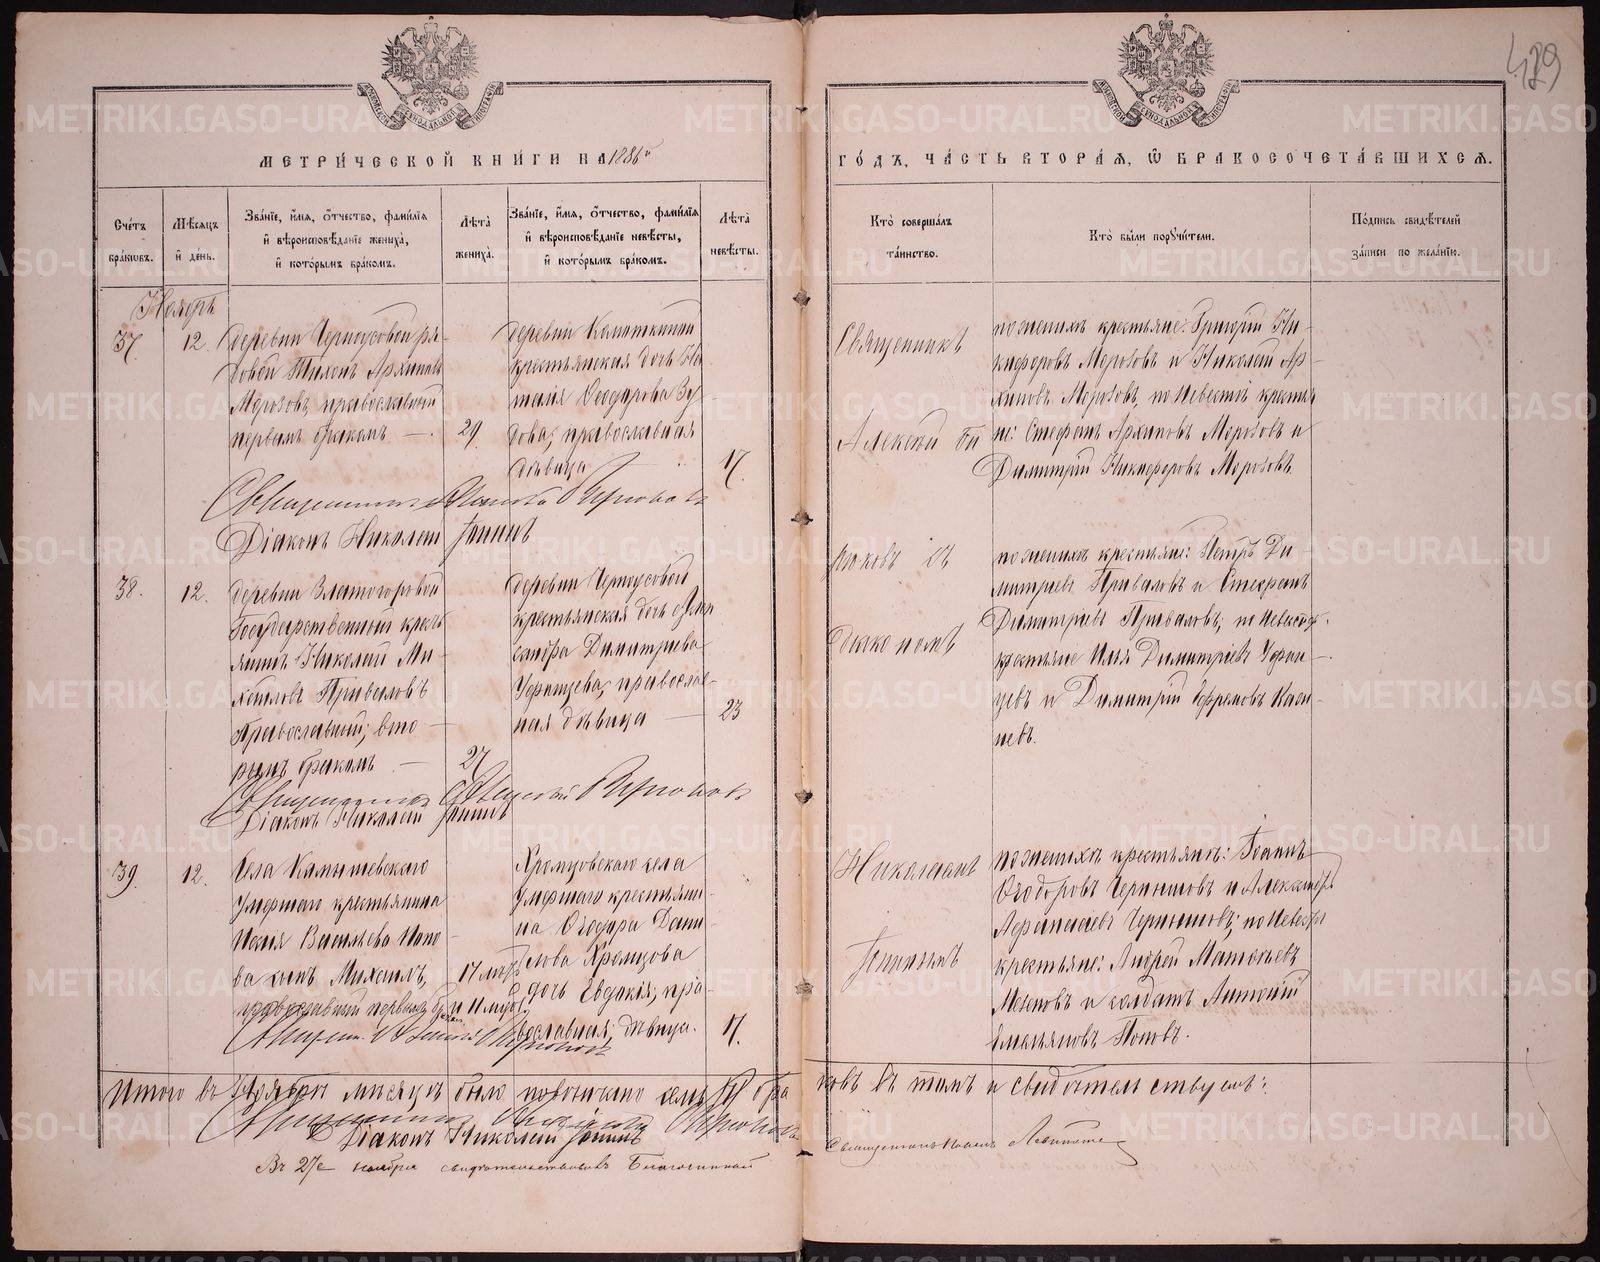 489
МЕТРИ́ЧЕСКОЙ КНИ́ГИ НА 1886й
ГО́ДЪ, ЧА́СТЬ ВТОРА́Я, Ѿ БРАКОСОЧЕТА́ВШИХСЯ.
Сче́тъ бра́кѡвъ.
Мѣ́сяцъ и҆ де́нь.
Зва́нїе, и҆́мя, ѻ҆́тчество, фами́лїя
и҆ вѣроисповѣ́данїе жениха̀,
и҆ кото́рымъ бра́комъ.
Лѣ́та жениха̀.
Зва́нїе, и҆́мя, ѻ҆́тчество, фами́лїя
и҆ вѣроисповѣ́данїе невѣ́сты,
и҆ кото́рымъ бра́комъ.
Лѣ́та невѣ́сты.
Кто̀ соверша́лъ
та́инство.
Кто̀ бы́ли порꙋчи́тели.
По́дпись свидѣ́телей
за́писи по жела́нїю.
Ноябрь
37.
12.
деревни Черноусовой ря-
довой Тихонъ Архиповъ
Морозовъ, православный
первымъ бракомъ —.
29.
деревни
крестьянская дочь На
талія Ѳеодорова Зу
дова, православная
дѣвица
17.
Священникъ
Алексій Би
рюковъ съ
діакономъ
Николаемъ
по женихѣ крестьяне: Григорій Ни-
кифоровъ Морозовъ и Николай Ар-
хиповъ Морозовъ, по невестѣ крестья
не: Стефанъ Архиповъ Морозовъ и
Димитрій Никифоровъ Морозовъ.
Священникъ Алексій Бирюковъ
Діаконъ Николай
38.
12.
деревни Златогоровой
Государственный кресть
янинъ Николай Ми-
хаиловъ Приваловъ
православный; вто-
рымъ бракомъ —
27
деревни Черноусовой
крестьянская дочь Алек
сандра Димитріева
православ-
ная дѣвица —
23
по женихѣ крестьяне: Петръ Ди-
митріевъ Приваловъ и Стефанъ
Димитріевъ Приваловъ; по невестѣ-
крестьяне Илья Димитріевъ
цевъ и Димитрій Ефремовъ
невъ.
Священникъ Алексій Бирюковъ
Діаконъ Николай
39.
12.
Села Камышевскаго
умершаго крестьянина
Исаія Васильева Попо-
ва сынъ Михаилъ,
православный первымъ бракомъ
17 лѣтъ
и 11 мѣс.
Хромцовскаго села
умершаго крестьяни-
на Ѳеодора Дани-
лова Хромцова
дочь Евдокія, пра-
вославная, дѣвица.
17.
по женихѣ крестьяне: Іоаннъ
Ѳеодоровъ Черншовъ и Александръ
Аѳанасьевъ Черншовъ; по невестѣ
крестьяне: Андрей Матвѣевъ
и солдатъ Антоній
Емельяновъ Поповъ.
Священ. Алексій Бирюковъ
Итого въ Ноябрѣ мѣсяцѣ было повѣнчано семь (7) бра
ковъ въ томъ и свидѣтельствуемъ:
Священникъ Алексій Бирюковъ
Діаконъ Николай
Въ 27е ноября свидѣтельствовалъ Благочинный
Священникъ